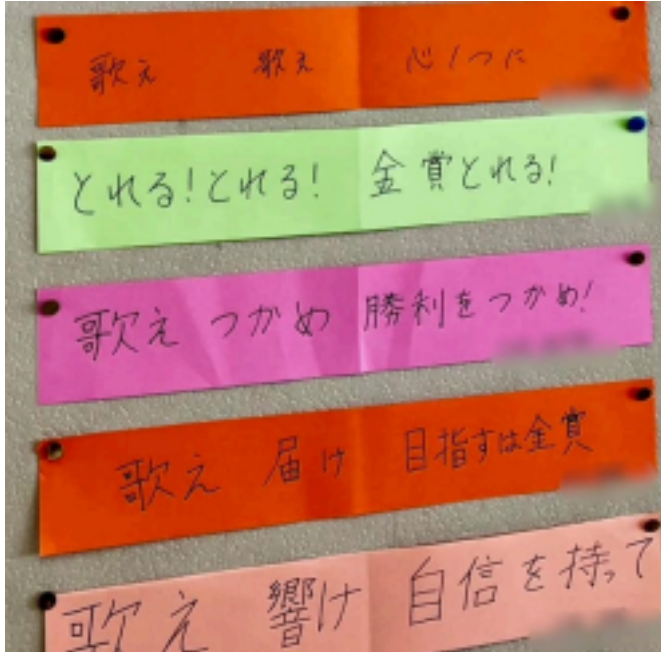 歌え 歌え 心1つに
とれる!とれる! 金賞とれる!
歌え つかめ 勝利をつかめ!
歌え 届け 目指すは金賞
歌え 響け 自信を持って